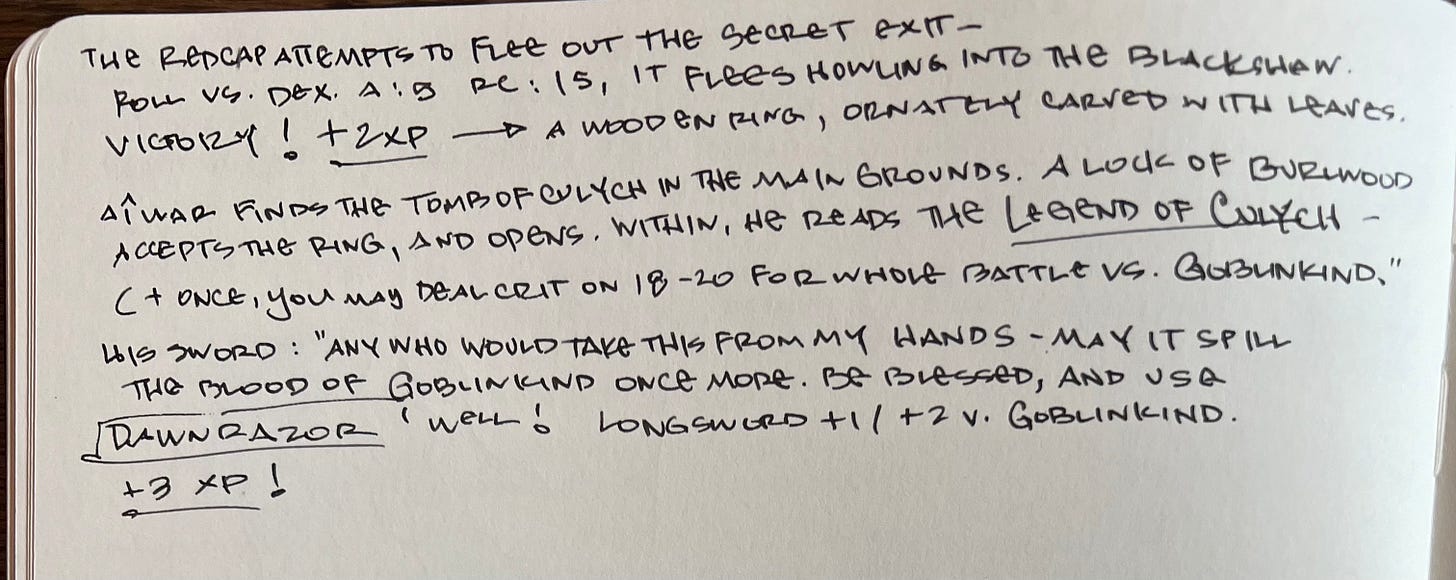 THE REDCAP ATTEMPTS TO FLEE OUT THE SECRET EXIT –
ROLL VS. DEX. A: 9 RC: 15, IT FLEES HOWLING INTO THE BLACKSHAW.
VICTORY! +2XP → A WOODEN RING, ORNATELY CARVED WITH LEAVES.
AÎWAR FINDS THE TOMB OF CULYCH IN THE MAIN GROUNDS. A LOCK OF BURLWOOD
ACCEPTS THE RING, AND OPENS. WITHIN, HE READS THE LEGEND OF CULYCH –
(+ ONCE, YOU MAY DEAL CRIT ON 18-20 FOR WHOLE BATTLE VS. GOBLINKIND."
HIS SWORD: "ANY WHO WOULD TAKE THIS FROM MY HANDS – MAY IT SPILL
THE BLOOD OF GOBLINKIND ONCE MORE. BE BLESSED, AND USE
DAWNRAZOR WELL! LONGSWORD +1/ +2 V. GOBLINKIND.
+3 XP!